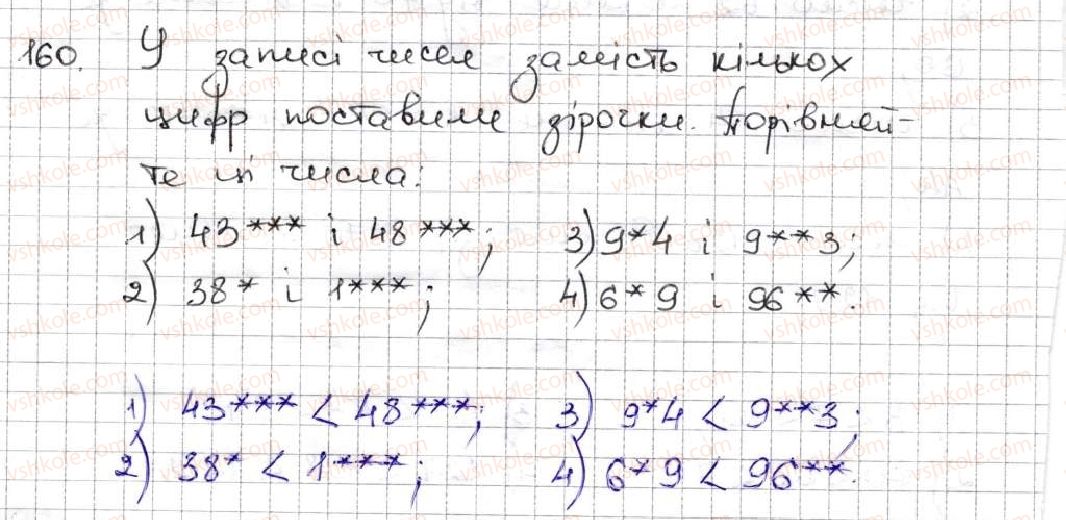 160. У записі чисел замість кількох
цифр поставили зірочки. Порівняй-
те ці числа:
1) 43*** і 48***; 3) 9*4 і 9**3;
2) 38* і 1***; 4) 6*9 і 96**.
1) 43*** < 48***; 3) 9*4 < 9**3;
2) 38* < 1***; 4) 6*9 < 96**.